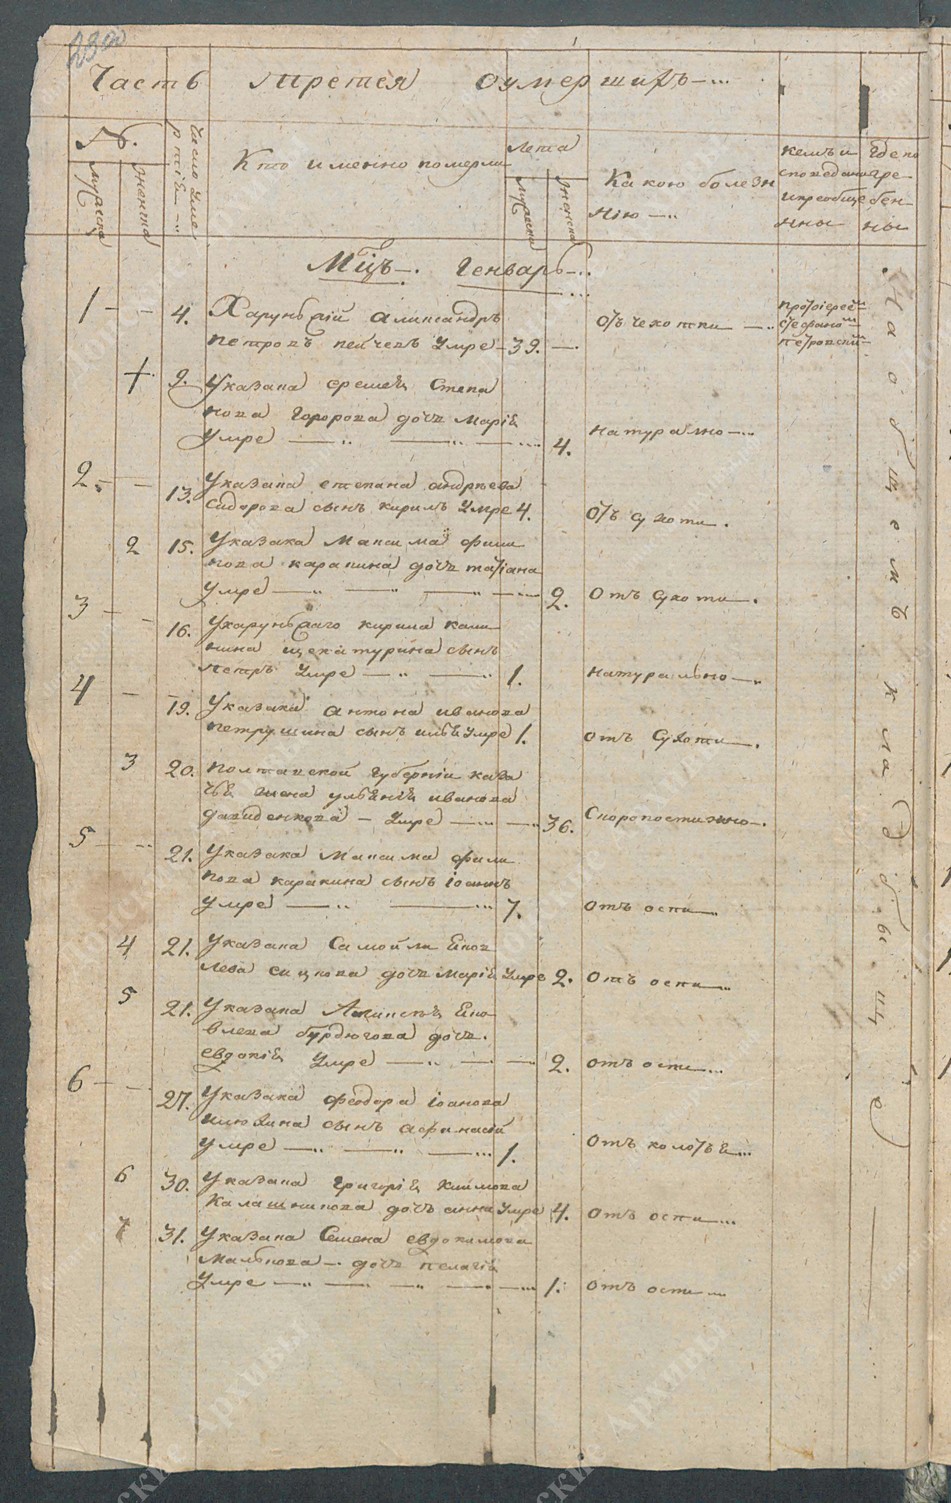 Часть третея оумершихъ
№.
мужеска
женска
Число умертвiя
Кто именно померли
Лета
мужеска
женска
Какою болезнiю
кемъ исповеданы и преобщенны
где погребенны
Мцъ Генварь
1 4. Харунжiй Аликсандръ
Петровъ умре 39. отъ чехотки
протоiереемъ Стефаномъ Петровскимъ
9. Указака
дочь Марiя
умре 4. натурально
2. 13. Указака степана андреева
Сидорова сынъ кирилъ умре 4. отъ сухоти.
2 15. Указака Максима фили
пова каракина дочь татiана
умре 2. отъ сухоти.
3 16. Ухарунжаго кирила кали
нина щекатурина сынъ
петръ умре 1. натурально
4 19. Указака антона иванова
петрушина сынъ илья умре 1. отъ сухоти.
3 20. полтавской губернiи каза
чья жена ульянiя иванова
давиденкова умре 36. Скоропостижно.
5 21. Указака Максима фили
пова каракина сынъ iоаннъ
умре 7. отъ оспи
4 21. Указака Самойли Яков
лева сацкова дочь марiя умре 2. отъ оспи
5 21. Указака Яко
влева бурдюгова дочь.
евдокiя умре 2. отъ оспи
6 27. Указака феодора iоанова
илюхина сынъ афанасiй
умре 1. отъ колотья
6 30. Указака григорiя
Калашникова дочь анна умре 4. отъ оспи
31. Указака Семена евдокимова
дочь пелагiя
умре 1. отъ оспи
На общемъ кладбище